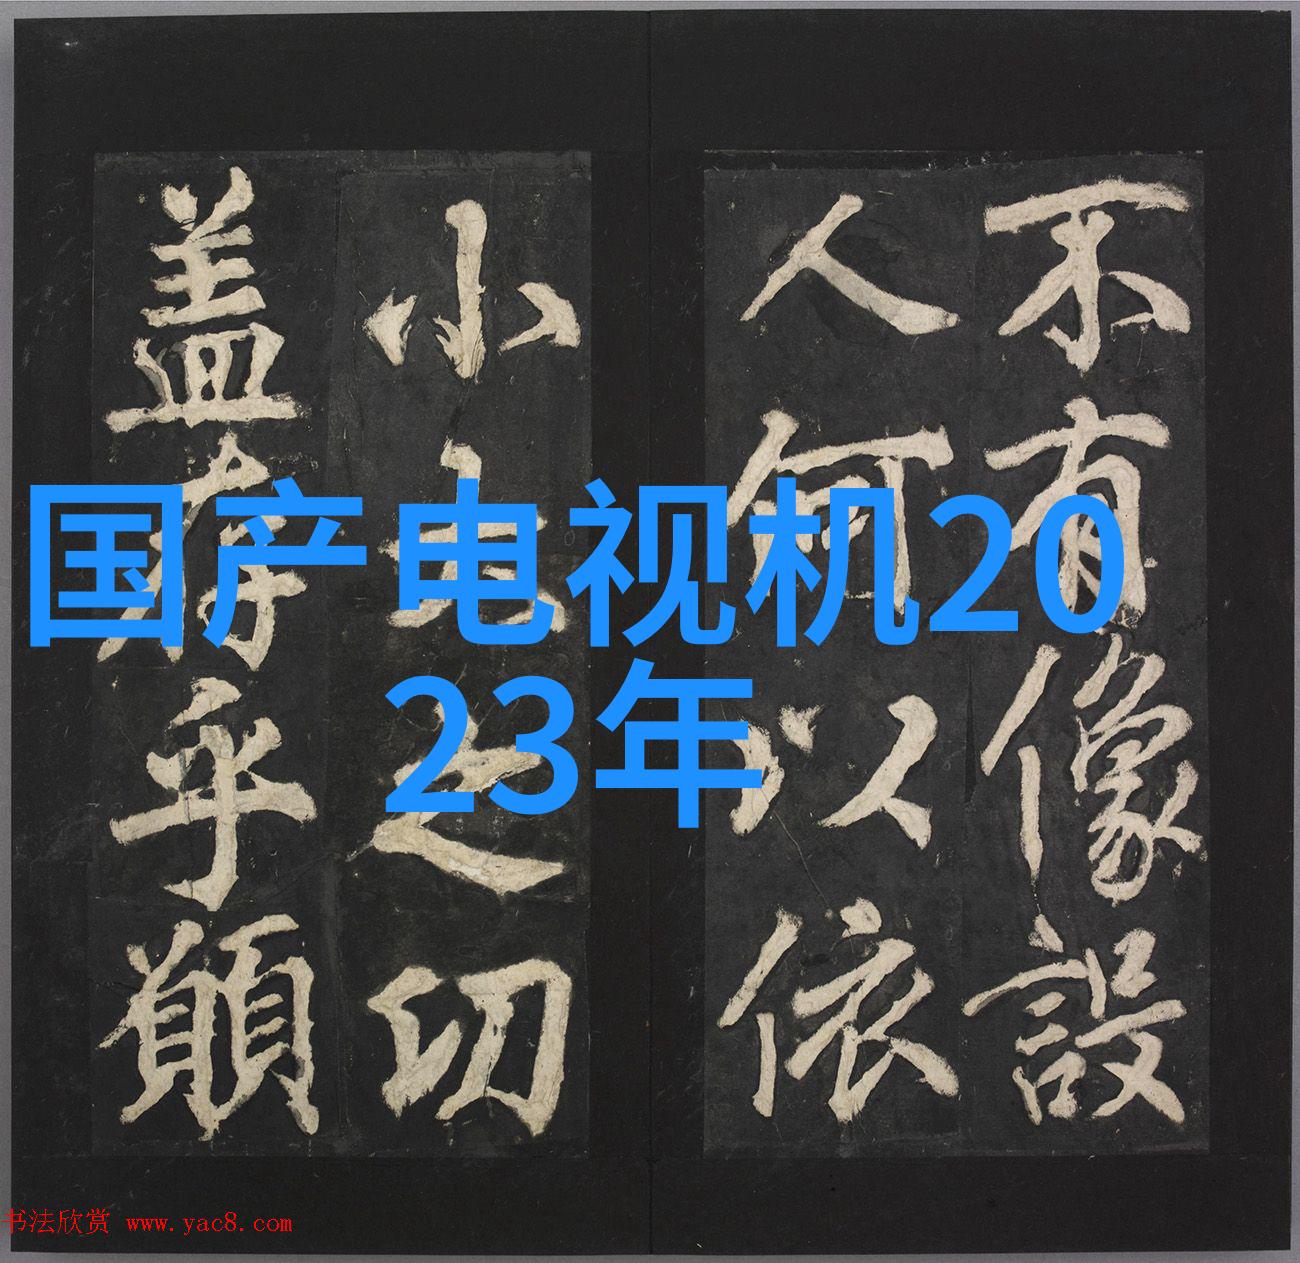 不有像設
人何以依
小之切
盖存乎願
国产电视机20
23年
书法欣赏 www.yac8.com